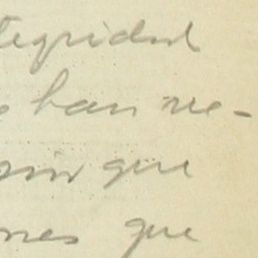 tegridad
han ve-
sin que
nes que